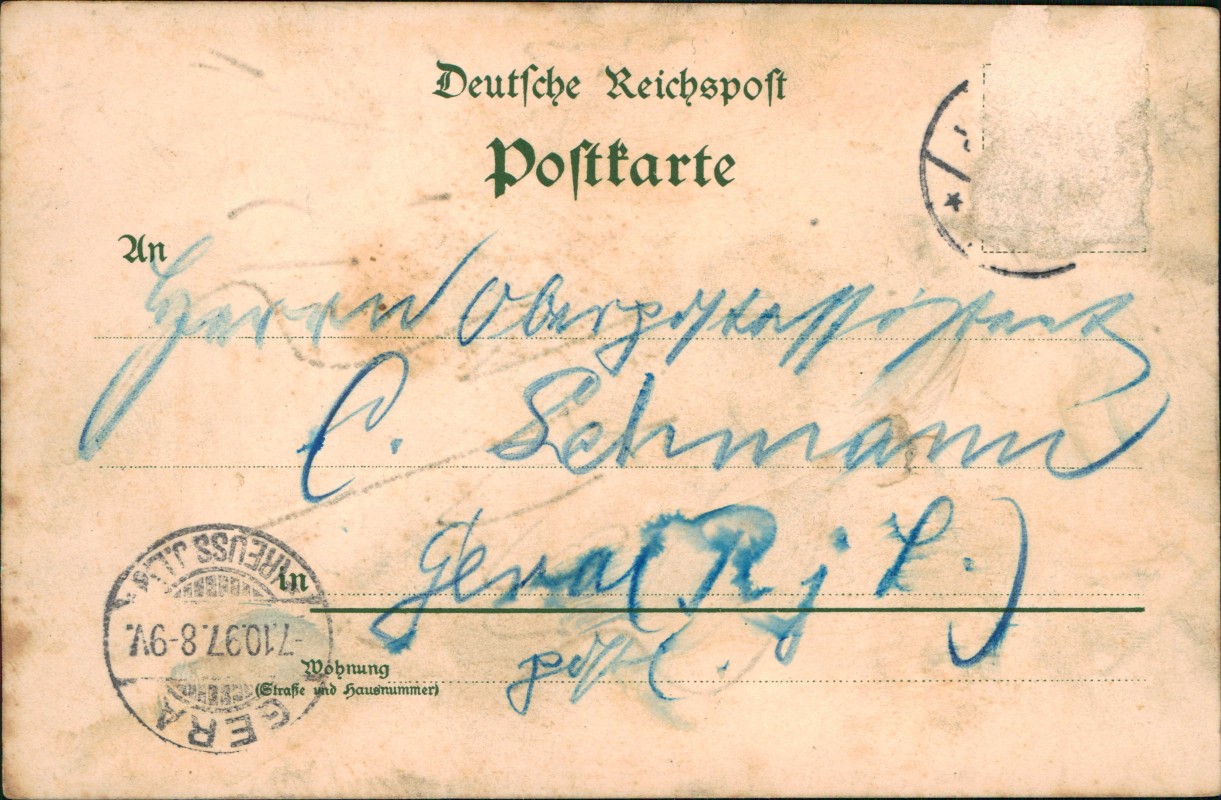 Deutsche Reichspost
Postkarte
An
Herrn Oberpostassistent
C. Lehmann
in Gera (R j L.)
postl.
Wohnung
(Straße und Hausnummer)
GERA
-7.10.97.8-9V.
(REUSS J.L.)